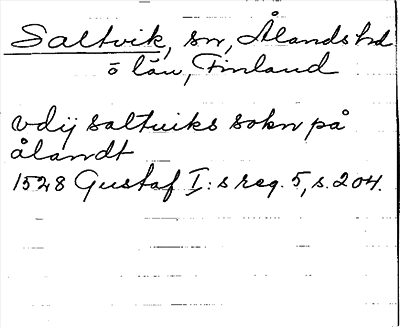 Saltvik, sn, Ålands hd
ö län, Finland
vdij saltuiks sokn på
ålandt
1528 Gustaf I:s reg. 5, s. 204.